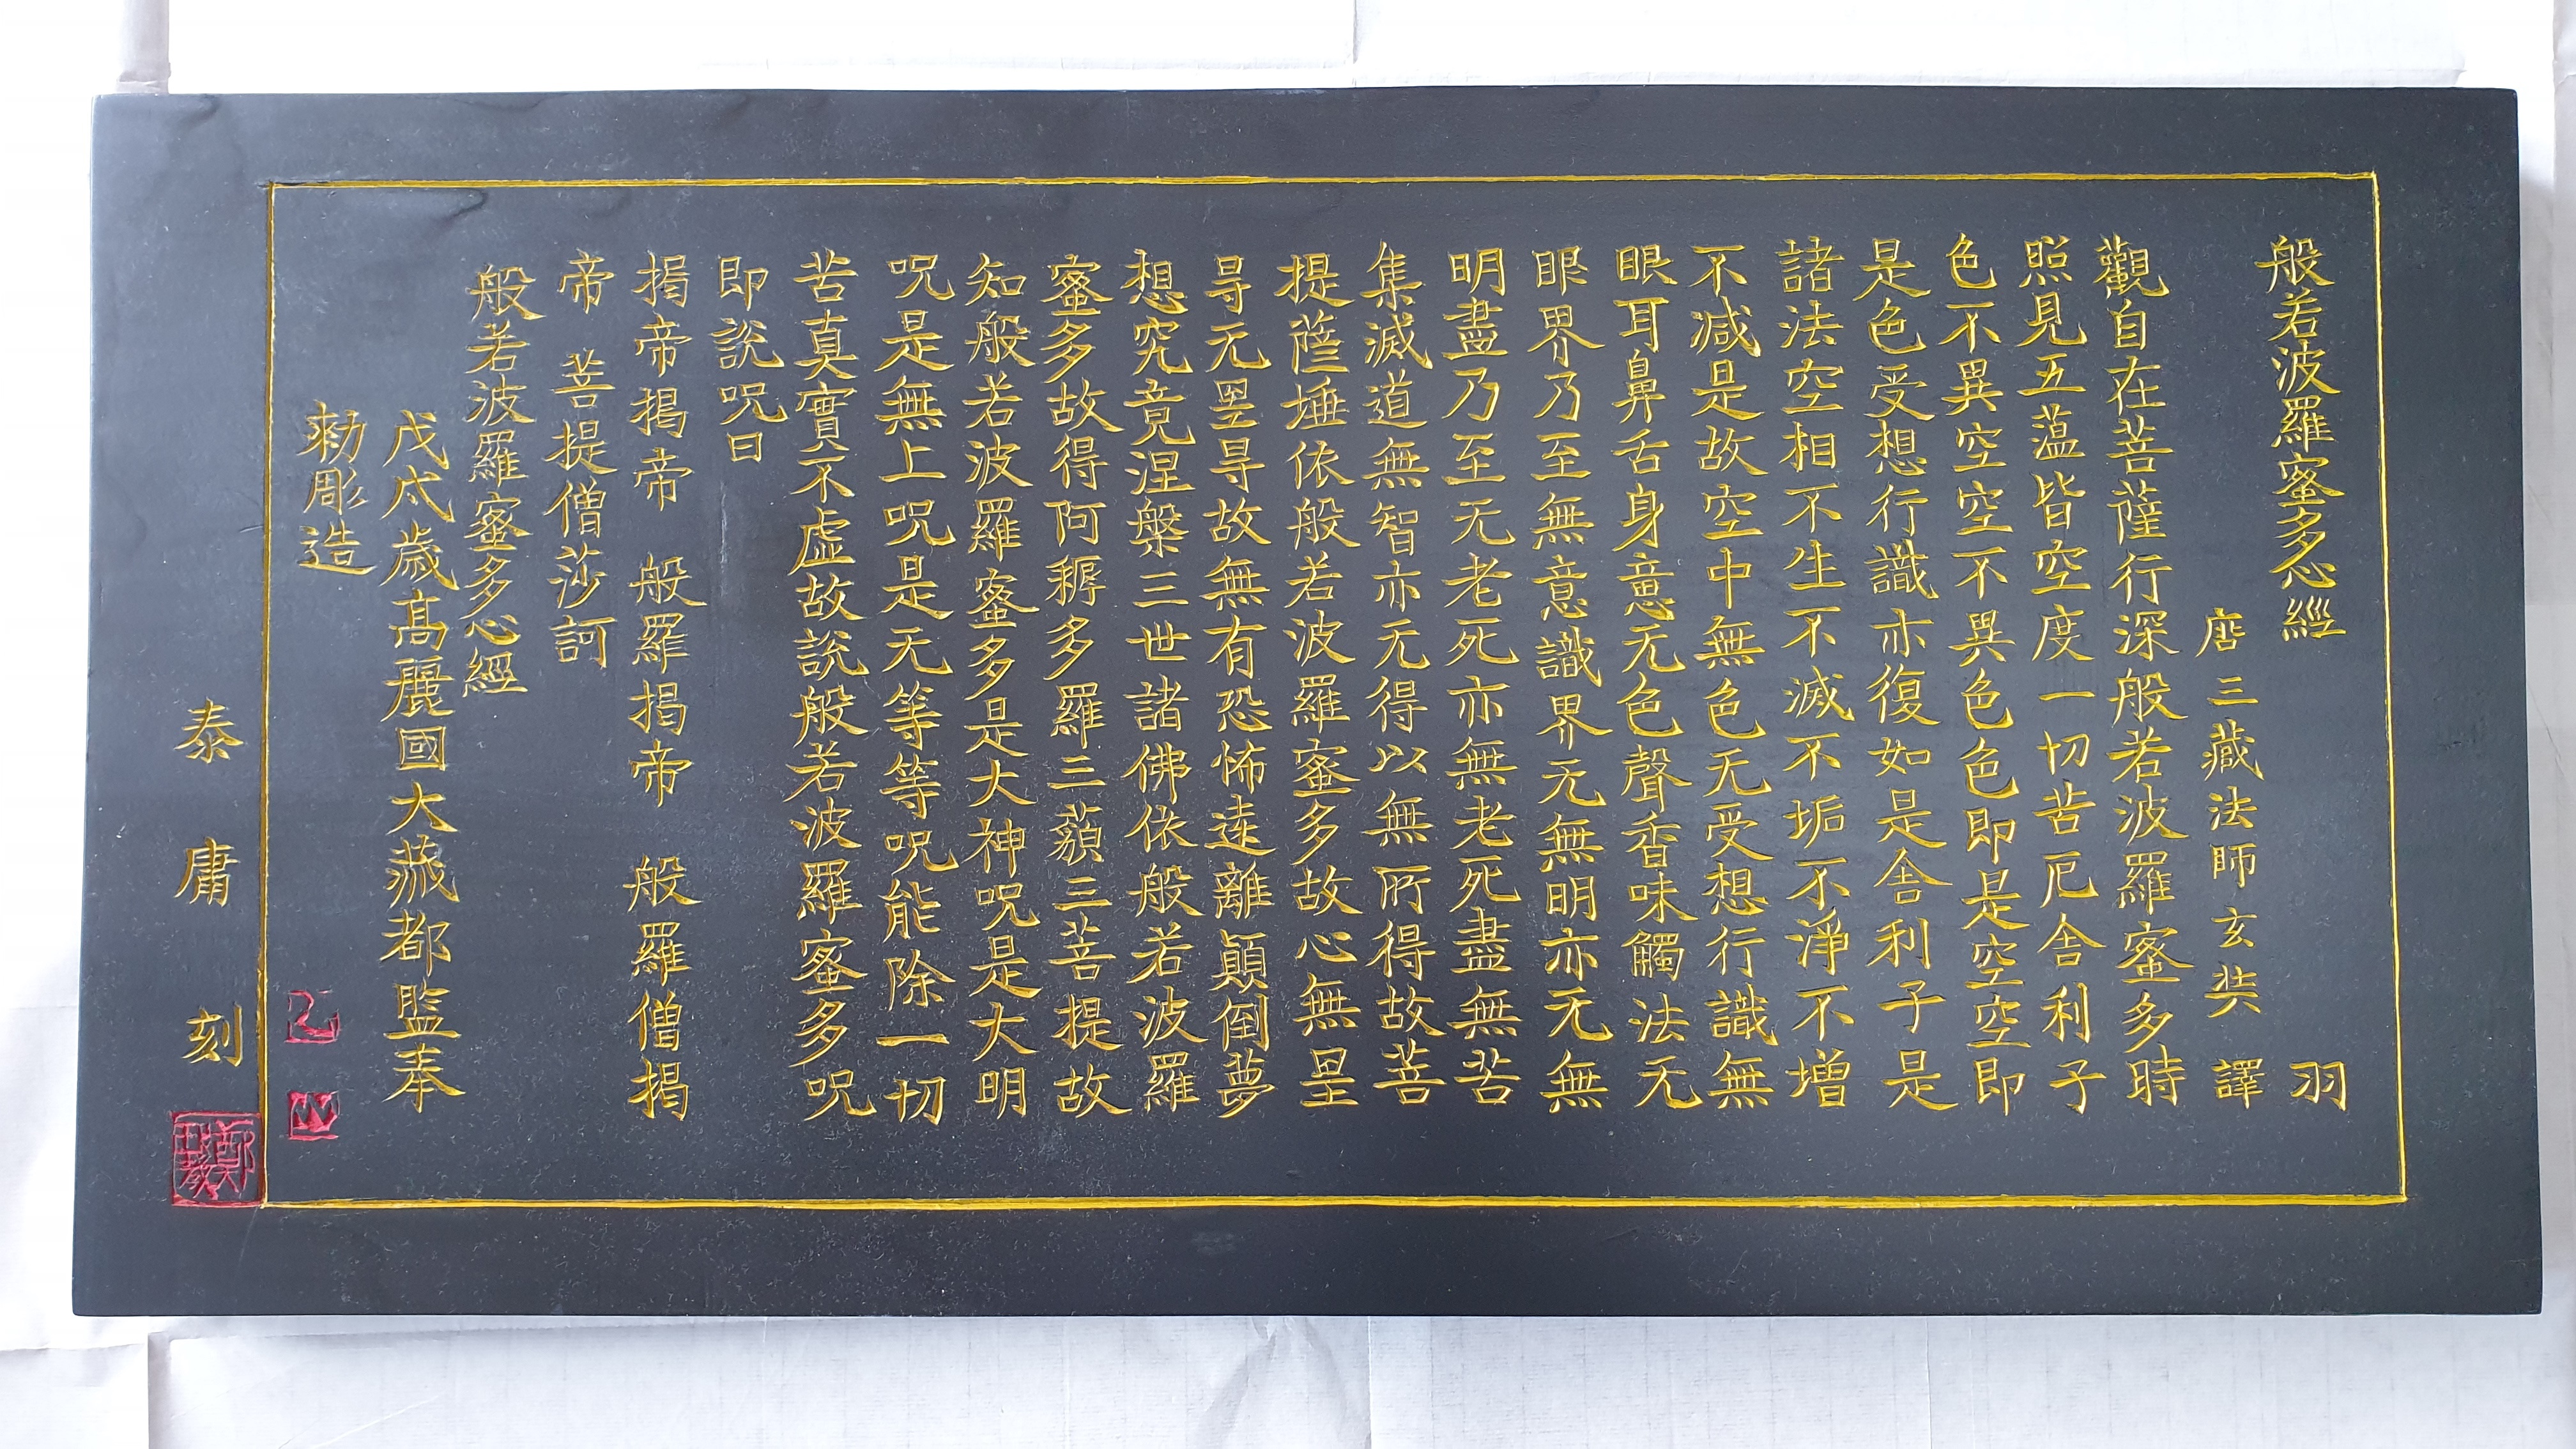 般若波羅蜜多心經 羽
唐三藏法師玄奘 譯
觀自在菩薩行深般若波羅蜜多時
照見五蕰皆空度一切苦厄舍利子
色不異空空不異色色即是空空即
是色受想行識亦復如是舍利子是
諸法空相不生不滅不垢不淨不增
不减是故空中無色无受想行識無
眼耳鼻舌身意无色聲香味觸法无
眼界乃至無意識界无無明亦无無
明盡乃至无老死亦無老死盡無苦
集滅道無智亦无得以無所得故菩
提薩埵依般若波羅蜜多故心無罣
㝵无罣㝵故無有恐怖遠離顛倒夢
想究竟涅槃三世諸佛依般若波羅
蜜多故得阿耨多羅三藐三菩提故
知般若波羅蜜多是大神呪是大明
呪是無上呪是无等等呪能除一切
苦真實不虛故說般若波羅蜜多呪
即說呪曰
揭帝揭帝 般羅揭帝 般羅僧揭
帝 菩提僧莎訶
般若波羅蜜多心經
戊戌歲高麗國大藏都監奉
勅彫造
泰庸刻